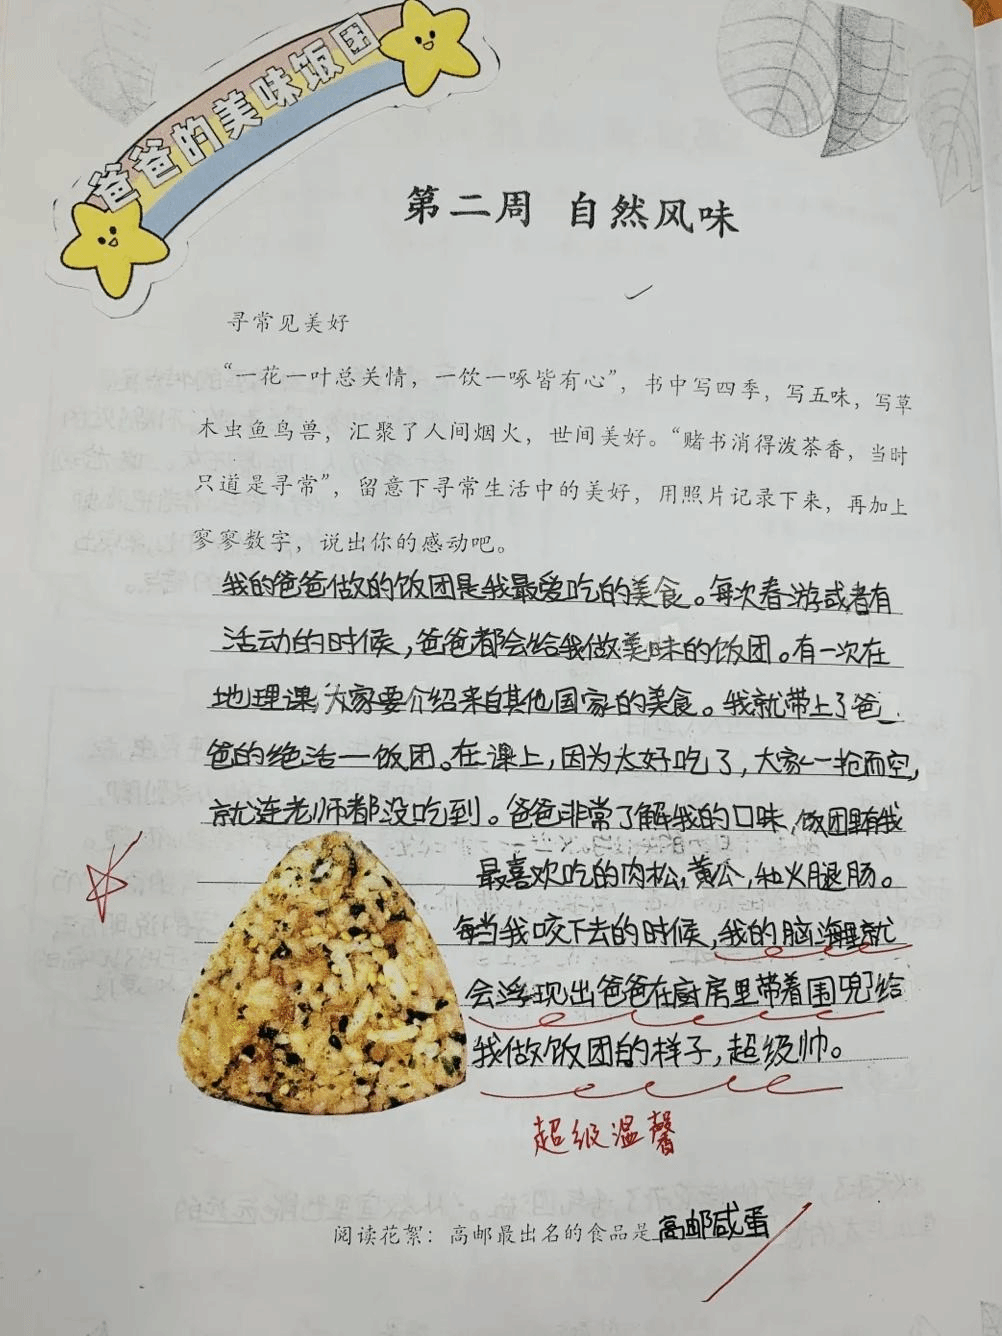 爸爸的美味饭团
第二周 自然风味
寻常见美好
“一花一叶总关情，一饮一啄皆有心”，书中写四季，写五味，写草
木虫鱼鸟兽，汇聚了人间烟火，世间美好。“赌书消得泼茶香，当时
只道是寻常”，留意下寻常生活中的美好，用照片记录下来，再加上
寥寥数字，说出你的感动吧。
我的爸爸做的饭团是我最爱吃的美食。每次春游或者有
活动的时候，爸爸都会给我做美味的饭团。有一次在
地理课，大家要介绍来自其他国家的美食。我就带上了爸
爸的绝活—饭团。在课上，因为太好吃了，大家一抢而空，
就连老师都没吃到。爸爸非常了解我的口味，饭团里有我
最喜欢吃的肉松，黄瓜，和火腿肠。
每当我咬下去的时候，我的脑海里就
会浮现出爸爸在厨房里带着围兜给
我做饭团的样子，超级帅。
超级温馨
阅读花絮：高邮最出名的食品是高邮咸蛋